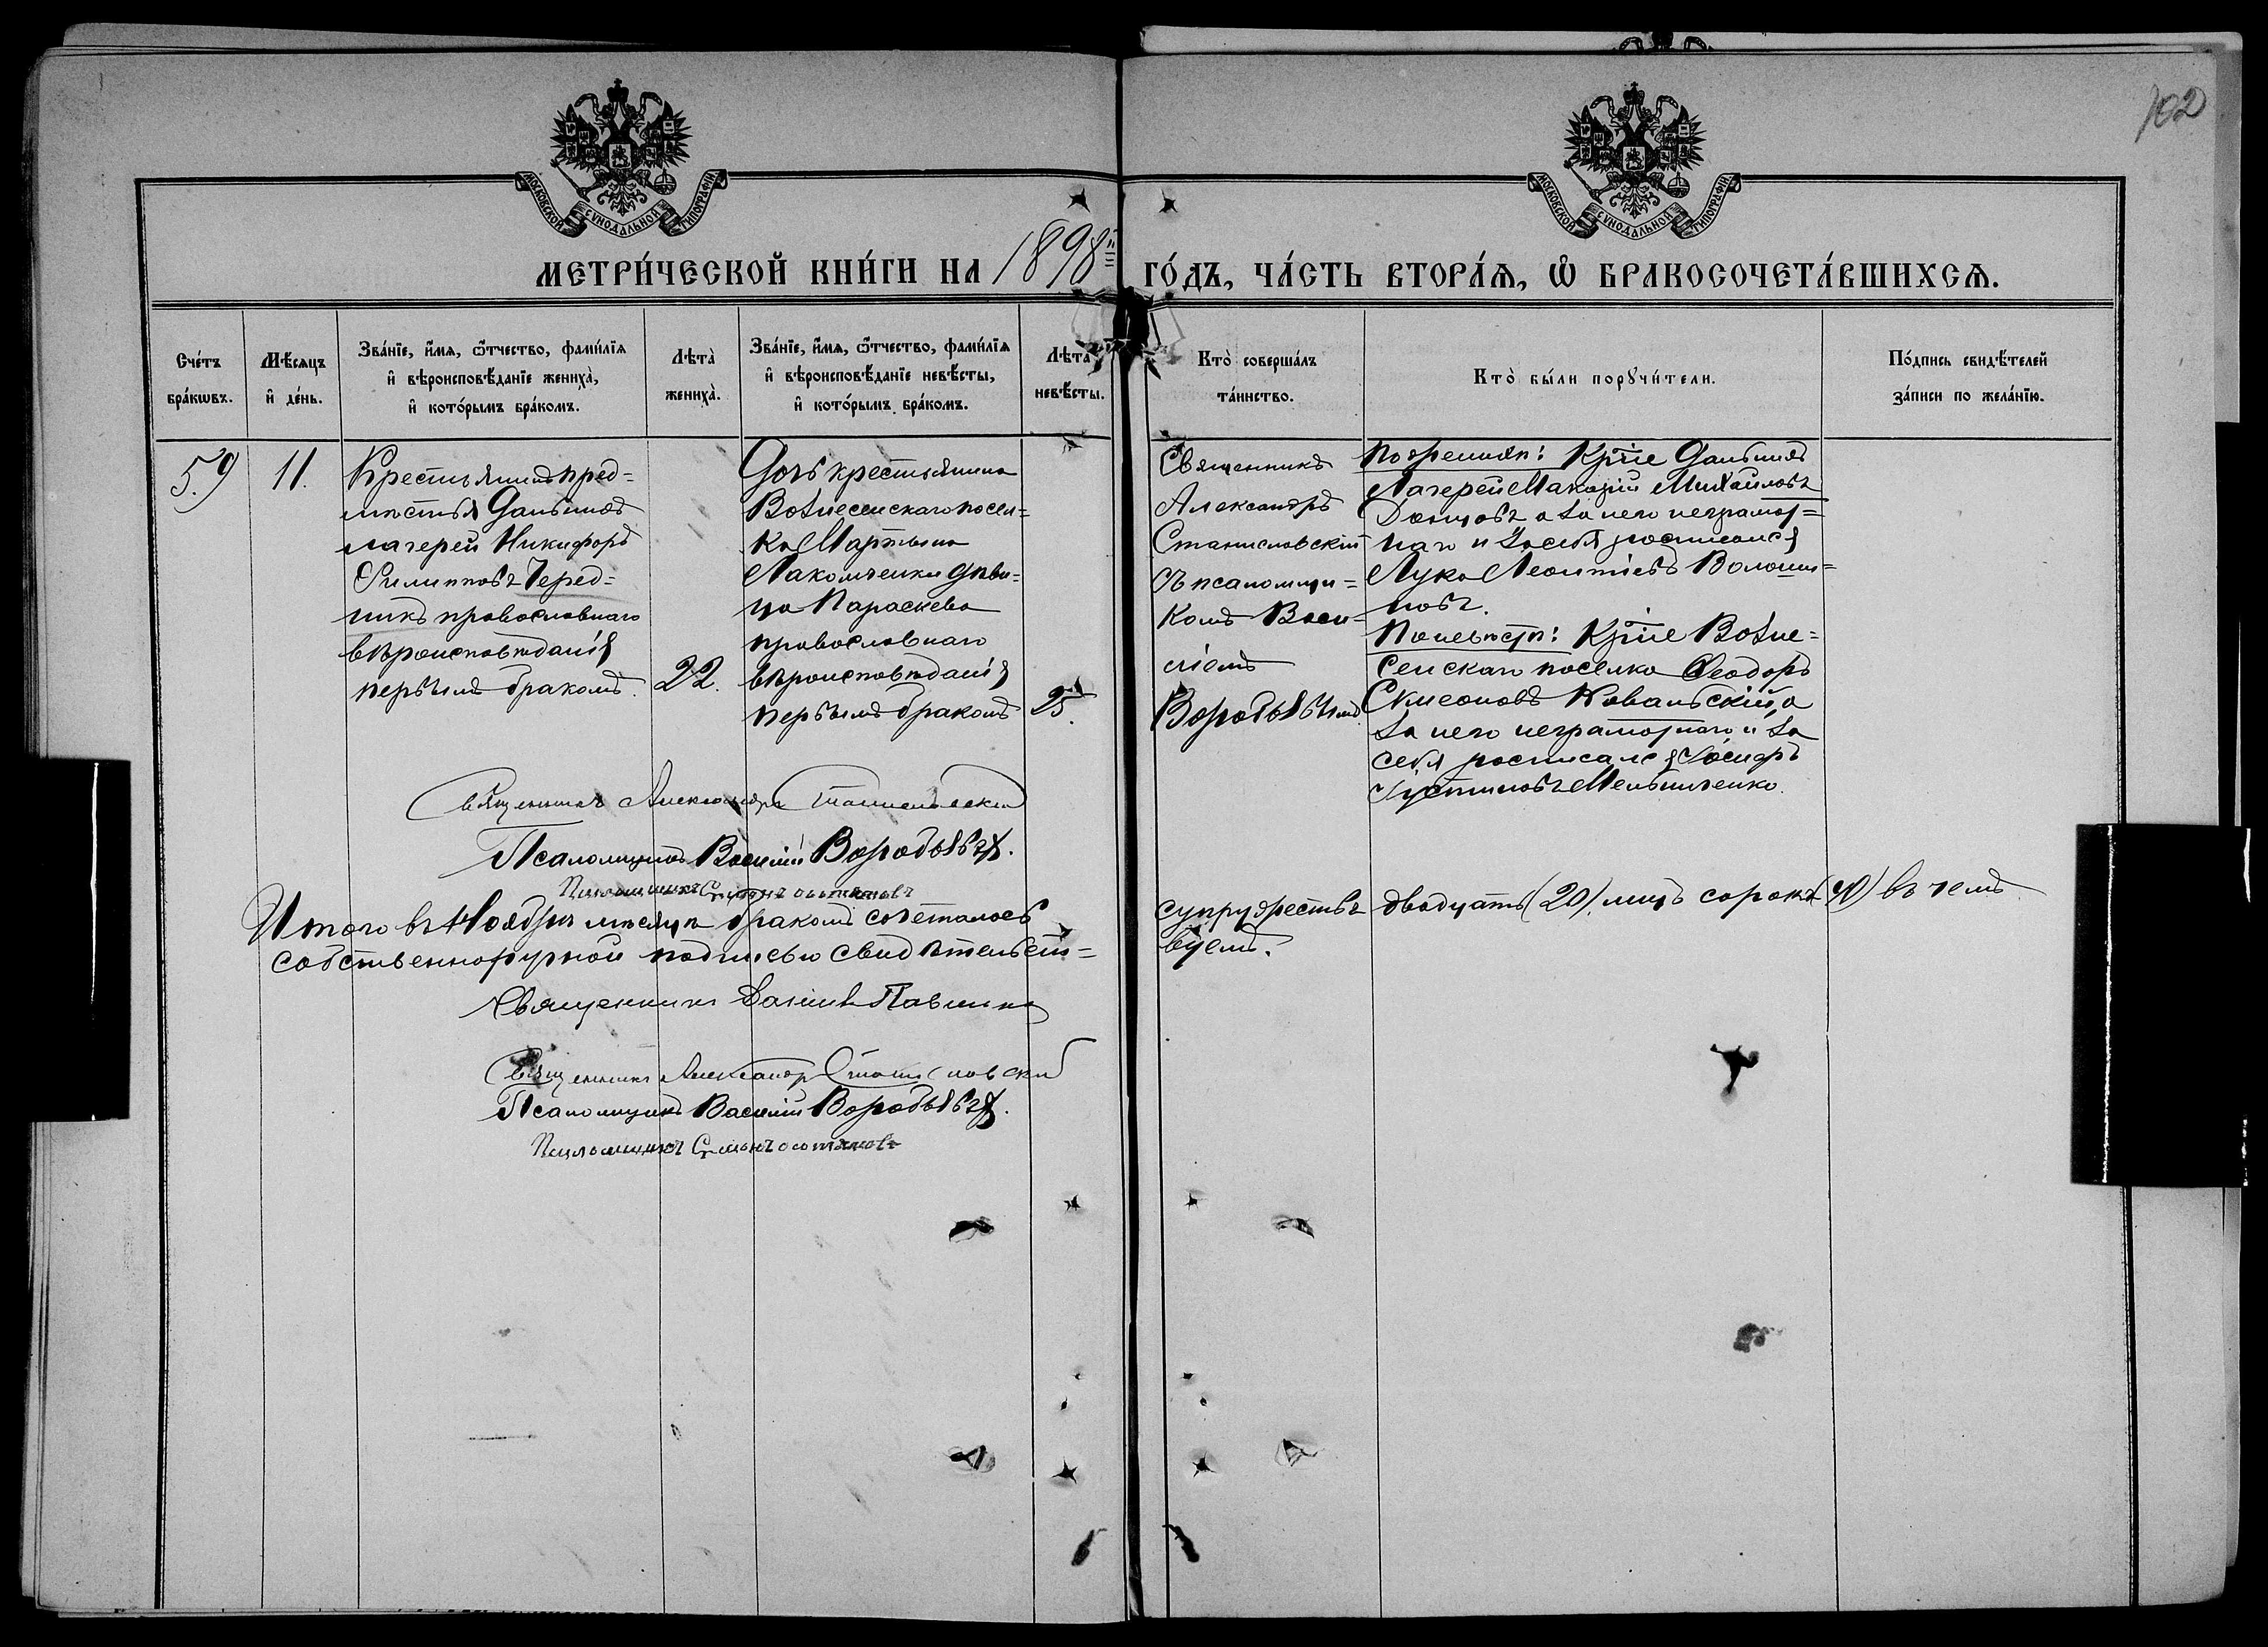 102
МОСКОВСКОЙ СѴНОДАЛЬНОЙ ТИПОГРАФІИ
МОСКОВСКОЙ СѴНОДАЛЬНОЙ ТИПОГРАФІИ
МЕТРИ́ЧЕСКОЙ КНИ́ГИ НА 1898й ГО́ДЪ, ЧА́СТЬ ВТОРА́Ѧ, Ѡ҆ БРАКОСОЧЕТА́ВШИХСѦ.
Сче́тъ
бра́кѡвъ.
Мѣ́сяцъ
и҆ де́нь.
Зва́нїе, и҆́мѧ, ѻ҆́тчество, фами́лїѧ
и҆ вѣроисповѣ́данїе жениха̀,
и҆ кото́рымъ бра́комъ.
Лѣта̀
жениха̀.
Зва́нїе, и҆́мѧ, ѻ҆́тчество, фами́лїѧ
и҆ вѣроисповѣ́данїе невѣ́сты,
и҆ кото́рымъ бра́комъ.
Лѣта̀
невѣ́сты.
Кто̀ соверша́лъ
та́инство.
Кто̀ бы́ли порꙋчи́тели.
По́дпись свидѣ́телей
за́писи по жела́нїю.
59
11.
Крестьянинъ пред=
мѣстья Дальнихъ
лагерей Никифоръ
Филипповъ Черед=
никъ православнаго
вѣроисповѣданія
первымъ бракомъ.
22.
Дочь крестьянина
Вознесенскаго посел=
ка Мартына
Лакомченки дѣви=
ца Параскева
православнаго
вѣроисповѣданія
первымъ бракомъ
25.
Священникъ
Александръ
Станиславскій
съ псаломщи=
комъ Васи=
ліемъ
Воробьевымъ.
По женихѣ: Крѣ Дальнихъ
Лагерей Макарій Михайловъ
Донцовъ а за него неграмот=
наго и за себя росписался
Лука Леонтіевъ Волоши=
новъ.
По невѣстѣ: Крѣ Возне=
сенскаго поселка Ѳеодоръ
Симеоновъ Ковальскій, а
за него неграмотнаго и за
себя росписался Іосифъ
Іустиновъ Мельниченко.
Священникъ Александръ Станиславскій
Псаломщикъ Василій Воробьевъ.
Псаломщикъ
Итого въ Ноябрѣ мѣсяцѣ бракомъ сочеталось супружествъ двадцать (20) лицъ сорокъ (40) въ чемъ
собственноручной подписью свидѣтельст= вуемъ.
Священникъ
Священникъ Александръ Станиславскій
Псаломщикъ Василій Воробьевъ.
Псаломщикъ